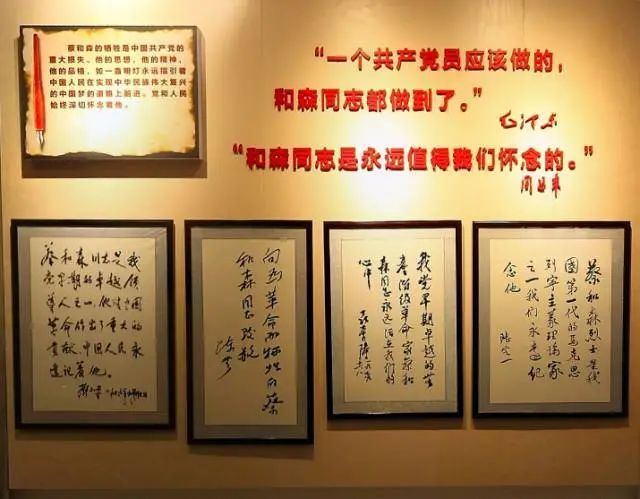 蔡和森的牺牲是中国共产党的
重大损失。他的思想，他的精神，
他的品格，如一盏明灯永远指引着
中国人民在实现中华民族伟大复兴
的中国梦的道路上前进。党和人民
始终深切怀念着他。
“一个共产党员应该做的，
和森同志都做到了。”
毛泽东
“和森同志是永远值得我们怀念的。”
周恩来
蔡和森同志是我
党早期的卓越领
导人之一，他对中国
革命作出了重大的
贡献，中国人民永
远记着他。
邓小平
向为革命而牺牲的蔡
和森同志致敬
我党早期卓越的无
产阶级革命家蔡和
森同志永远活在我们的
心中
蔡和森烈士是我
国第一代的马克思
列宁主义理论家
之一我们永远纪
念他
陆定一